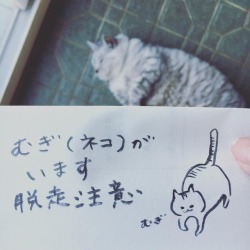 むぎ(ネコ)が
います
脱走注意
むぎ